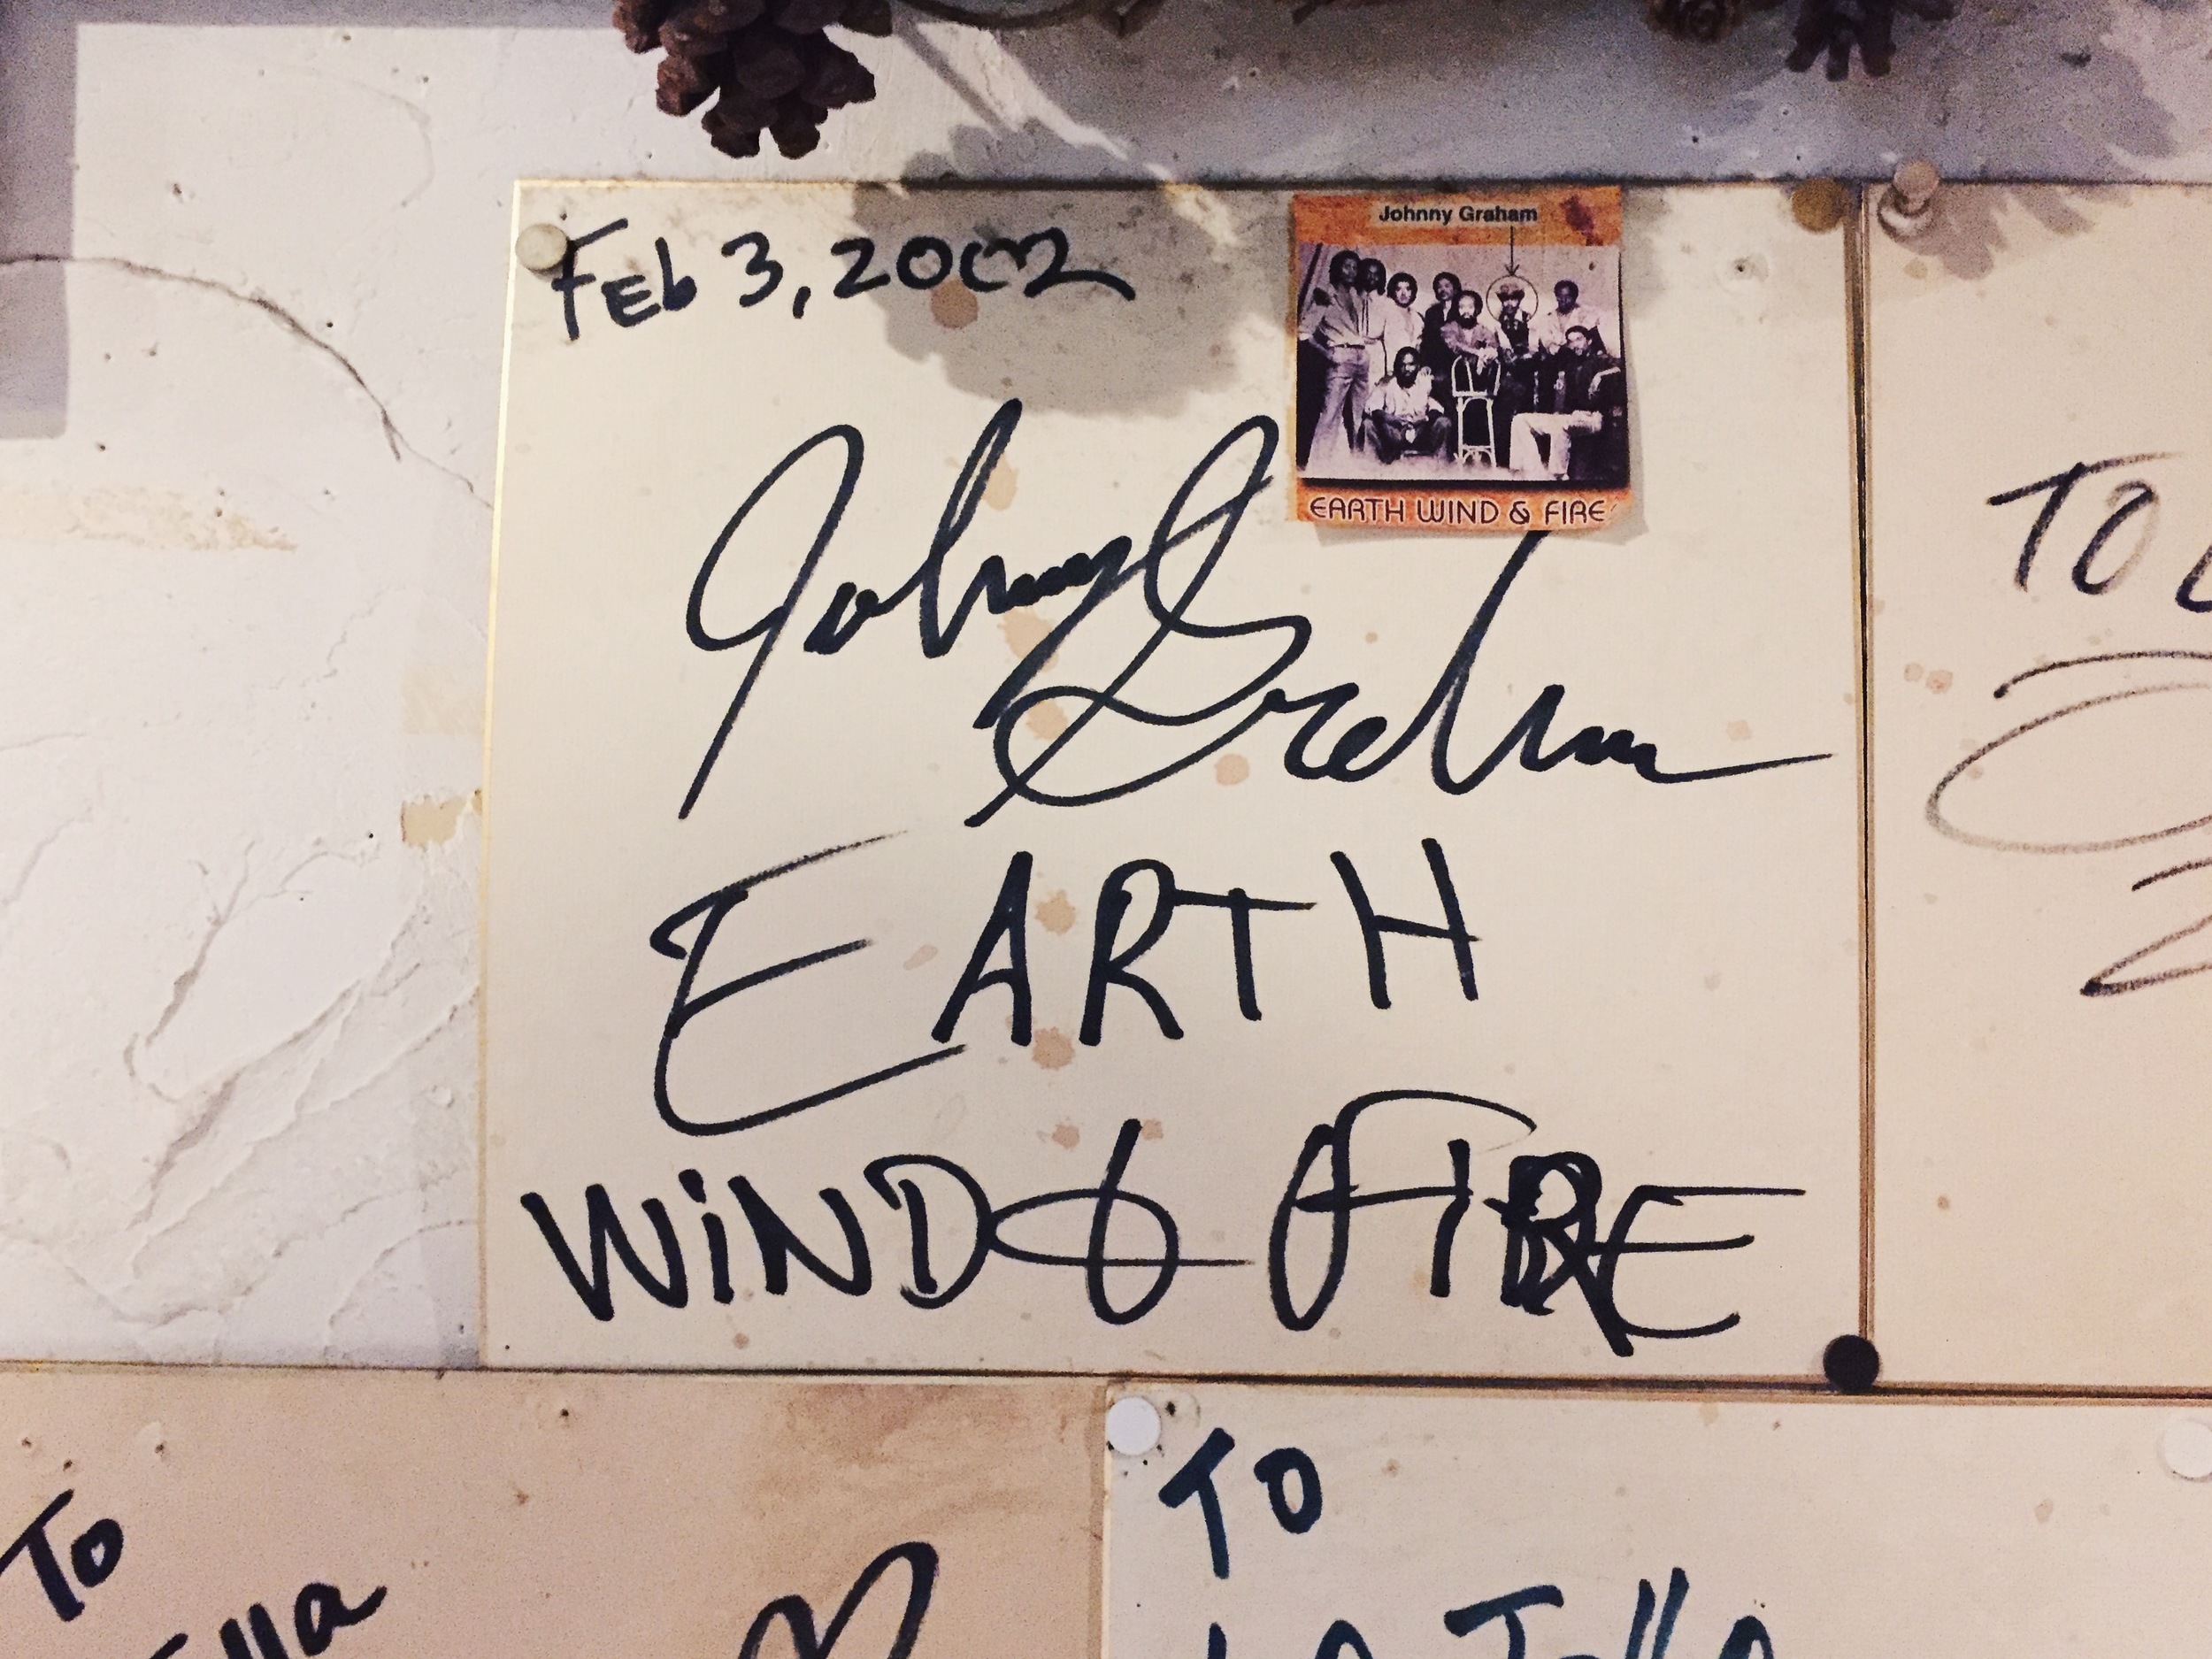 Feb 3, 2002
Johnny Graham
EARTH WIND & FIRE
Johnny Graham
EARTH
WiND & FIRE
TO
To
TO
La Jolla